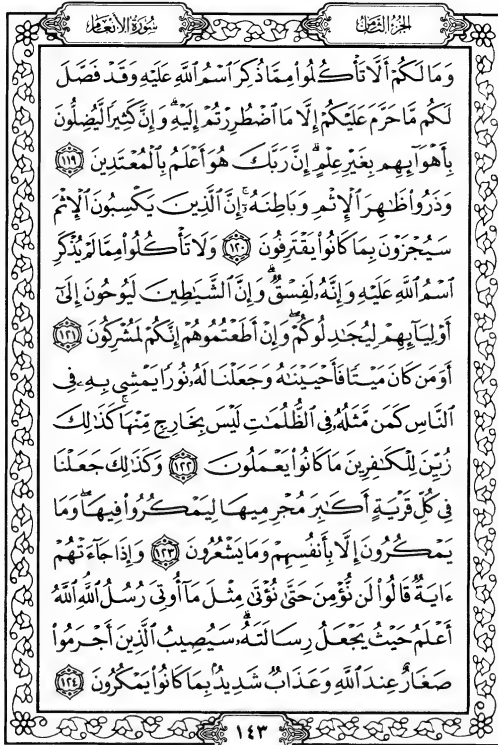 سُورَةُ الأَنْعَام
الجُزْءُ الثَّامِنُ
وَمَا لَكُمْ أَلَّا تَأْكُلُوا۟ مِمَّا ذُكِرَ ٱسْمُ ٱللَّهِ عَلَيْهِ وَقَدْ فَصَّلَ
لَكُم مَّا حَرَّمَ عَلَيْكُمْ إِلَّا مَا ٱضْطُرِرْتُمْ إِلَيْهِ ۗ وَإِنَّ كَثِيرًا لَّيُضِلُّونَ
بِأَهْوَآئِهِم بِغَيْرِ عِلْمٍ ۗ إِنَّ رَبَّكَ هُوَ أَعْلَمُ بِٱلْمُعْتَدِينَ ١١٩
وَذَرُوا۟ ظَٰهِرَ ٱلْإِثْمِ وَبَاطِنَهُۥٓ ۚ إِنَّ ٱلَّذِينَ يَكْسِبُونَ ٱلْإِثْمَ
سَيُجْزَوْنَ بِمَا كَانُوا۟ يَقْتَرِفُونَ ١٢٠ وَلَا تَأْكُلُوا۟ مِمَّا لَمْ يُذْكَرِ
ٱسْمُ ٱللَّهِ عَلَيْهِ وَإِنَّهُۥ لَفِسْقٌ ۗ وَإِنَّ ٱلشَّيَٰطِينَ لَيُوحُونَ إِلَىٰٓ
أَوْلِيَآئِهِمْ لِيُجَٰدِلُوكُمْ ۖ وَإِنْ أَطَعْتُمُوهُمْ إِنَّكُمْ لَمُشْرِكُونَ ١٢١
أَوَمَن كَانَ مَيْتًا فَأَحْيَيْنَٰهُ وَجَعَلْنَا لَهُۥ نُورًا يَمْشِى بِهِۦ فِى
ٱلنَّاسِ كَمَن مَّثَلُهُۥ فِى ٱلظُّلُمَٰتِ لَيْسَ بِخَارِجٍ مِّنْهَا ۚ كَذَٰلِكَ
زُيِّنَ لِلْكَٰفِرِينَ مَا كَانُوا۟ يَعْمَلُونَ ١٢٢ وَكَذَٰلِكَ جَعَلْنَا
فِى كُلِّ قَرْيَةٍ أَكَٰبِرَ مُجْرِمِيهَا لِيَمْكُرُوا۟ فِيهَا ۖ وَمَا
يَمْكُرُونَ إِلَّا بِأَنفُسِهِمْ وَمَا يَشْعُرُونَ ١٢٣ وَإِذَا جَآءَتْهُمْ
ءَايَةٌ قَالُوا۟ لَن نُّؤْمِنَ حَتَّىٰ نُؤْتَىٰ مِثْلَ مَآ أُوتِىَ رُسُلُ ٱللَّهِ ۘ ٱللَّهُ
أَعْلَمُ حَيْثُ يَجْعَلُ رِسَالَتَهُۥ ۗ سَيُصِيبُ ٱلَّذِينَ أَجْرَمُوا۟
صَغَارٌ عِندَ ٱللَّهِ وَعَذَابٌ شَدِيدٌۢ بِمَا كَانُوا۟ يَمْكُرُونَ ١٢٤
١٤٣